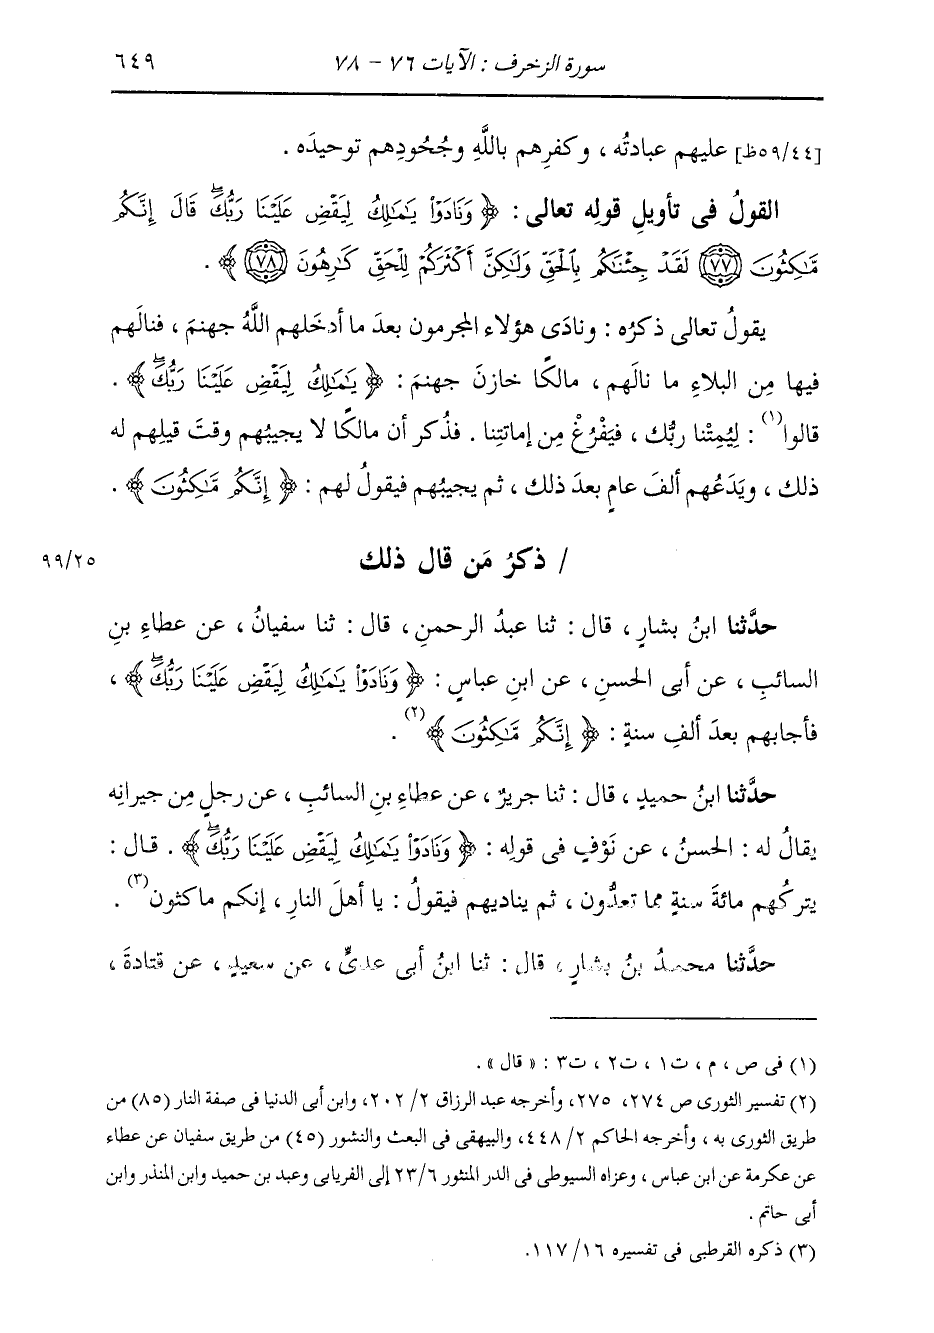 سورة الزخرف : الآيات ٧٦ - ٧٨
٦٤٩
[٥٩/٤٤ظ] عليهم عبادتُه ، وكفرِهم باللَّهِ وجُحُودِهم توحيدَه .
القولُ فى تأويلِ قولِه تعالى : ﴿ وَنَادَوْا۟ يَـٰمَـٰلِكُ لِيَقْضِ عَلَيْنَا رَبُّكَۖ قَالَ إِنَّكُم
مَّـٰكِثُونَ ﴿٧٧﴾ لَقَدْ جِئْنَـٰكُم بِٱلْحَقِّ وَلَـٰكِنَّ أَكْثَرَكُمْ لِلْحَقِّ كَـٰرِهُونَ ﴿٧٨﴾ ﴾ .
يقولُ تعالى ذكرُه : ونادَى هؤلاء المجرمون بعدَ ما أدخَلهم اللَّهُ جهنمَ ، فنالَهم
فيها مِن البلاءِ ما نالَهم ، مالكًا خازنَ جهنمَ : ﴿ يَـٰمَـٰلِكُ لِيَقْضِ عَلَيْنَا رَبُّكَۖ ﴾ .
قالوا(١) : لِيُمِتْنا ربُّك ، فيَفْرُغْ مِن إماتتِنا . فذُكر أن مالكًا لا يجيبُهم وقتَ قيلِهم له
ذلك ، ويَدَعُهم ألفَ عامٍ بعدَ ذلك ، ثم يجيبُهم فيقولُ لهم : ﴿ إِنَّكُم مَّـٰكِثُونَ ﴾ .
/ ذكرُ مَن قال ذلك
٩٩/٢٥
حدَّثنا ابنُ بشارٍ ، قال : ثنا عبدُ الرحمنِ ، قال : ثنا سفيانُ ، عن عطاءِ بنِ
السائبِ ، عن أبى الحسنِ ، عن ابنِ عباسٍ : ﴿ وَنَادَوْا۟ يَـٰمَـٰلِكُ لِيَقْضِ عَلَيْنَا رَبُّكَۖ ﴾ ،
فأجابهم بعدَ ألفِ سنةٍ : ﴿ إِنَّكُم مَّـٰكِثُونَ ﴾(٢) .
حدَّثنا ابنُ حميدٍ ، قال : ثنا جريرٌ ، عن عطاءِ بنِ السائبِ ، عن رجلٍ مِن جيرانِه
يقالُ له : الحسنُ ، عن نَوْفٍ فى قولِه : ﴿ وَنَادَوْا۟ يَـٰمَـٰلِكُ لِيَقْضِ عَلَيْنَا رَبُّكَۖ ﴾ . قال :
يتركُهم مائةَ سنةٍ مما تعدُّون ، ثم يناديهم فيقولُ : يا أهلَ النارِ ، إنكم ماكثون(٣) .
حدَّثنا محمدُ بنُ بشارٍ ، قال : ثنا ابنُ أبى عدىٍّ ، عن سعيدٍ ، عن قتادةَ ،
(١) فى ص ، م ، ت١ ، ت٢ ، ت٣ : « قال » .
(٢) تفسير الثورى ص ٢٧٤، ٢٧٥، وأخرجه عبد الرزاق ٢/ ٢٠٢، وابن أبى الدنيا فى صفة النار (٨٥) من
طريق الثورى به ، وأخرجه الحاكم ٢/ ٤٤٨، والبيهقى فى البعث والنشور (٤٥) من طريق سفيان عن عطاء
عن عكرمة عن ابن عباس ، وعزاه السيوطى فى الدر المنثور ٢٣/٦ إلى الفريابى وعبد بن حميد وابن المنذر وابن
أبى حاتم .
(٣) ذكره القرطبى فى تفسيره ١٦/ ١١٧.